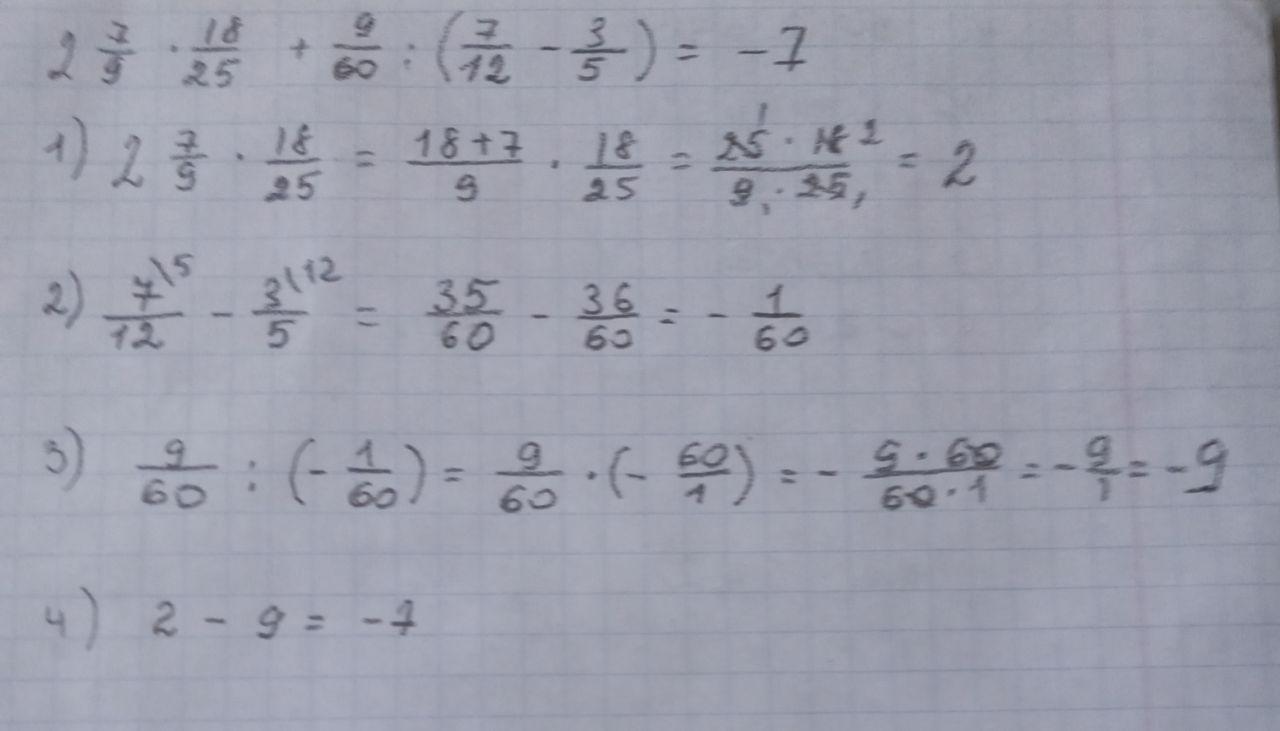 2 7/9 · 18/25 + 9/60 : (7/12 - 3/5) = -7
1) 2 7/9 · 18/25 = 18+7/9 · 18/25 = 25 1 · 18 2/9 1 · 25 1 = 2
2) 7\5/12 - 3\12/5 = 35/60 - 36/60 = - 1/60
3) 9/60 : (- 1/60) = 9/60 · (- 60/1) = - 9 · 60/60 · 1 = - 9/1 = -9
4) 2 - 9 = -7